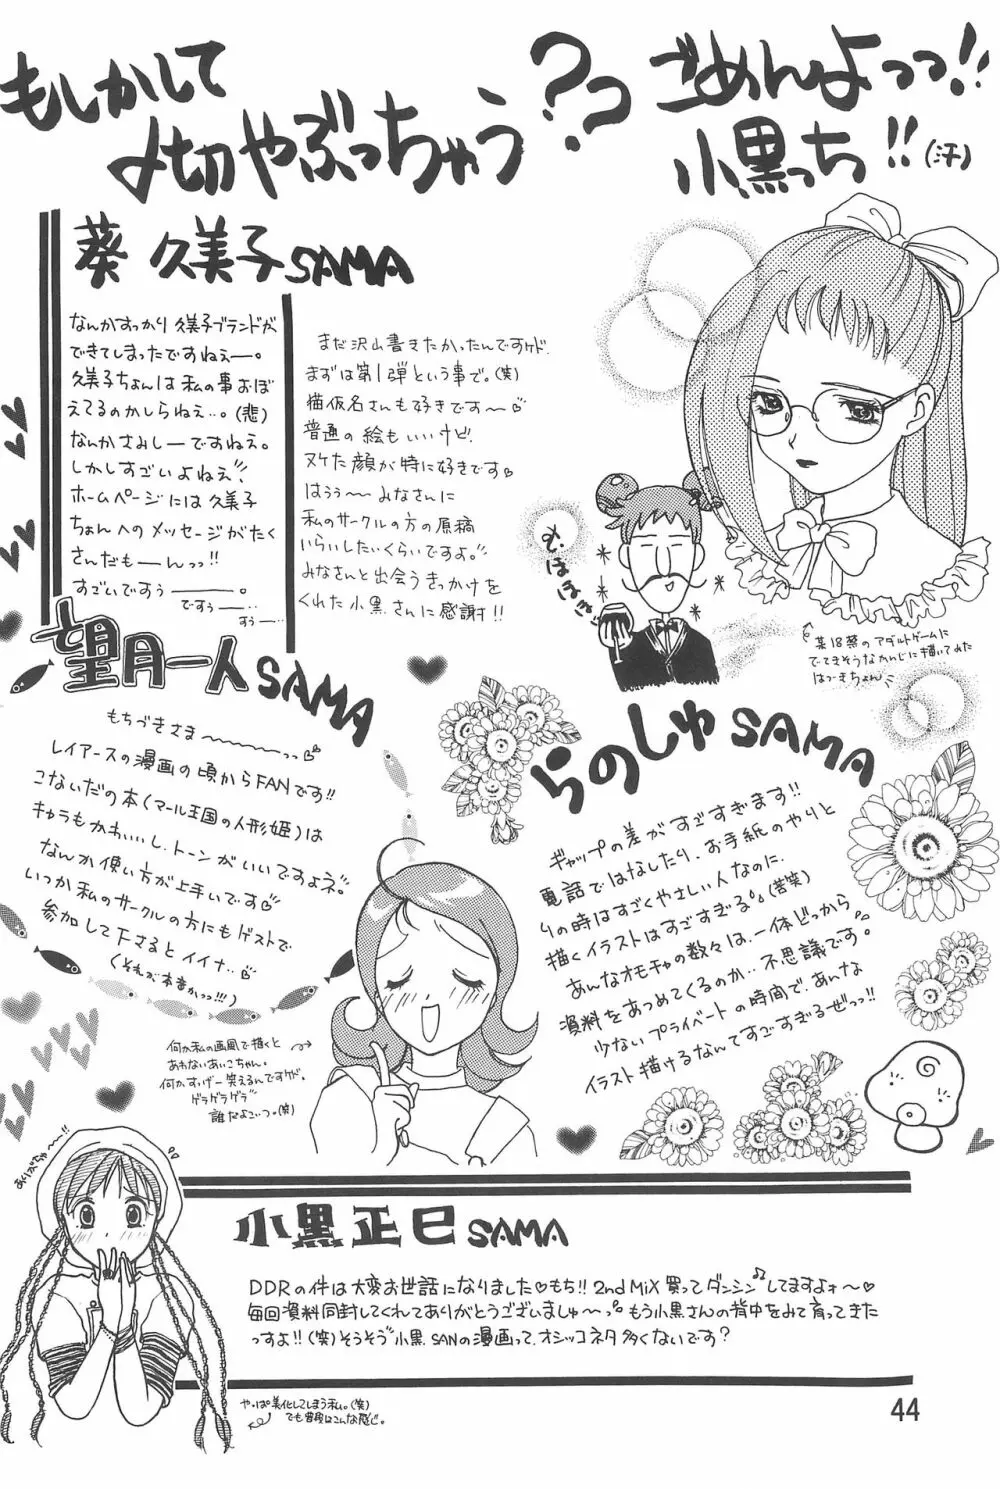 もしかして
〆切やぶっちゃう??
ごめんよっっ!!
小黒っち!!(汗)
葵 久美子SAMA
なんかすっかり久美子ブランドが
できてしまったですねえー。
久美子ちょんは私の事おぼ
えてるのかしらねえ…。(悲)
なんかさみしーですねえ。
しかしすごいよねえ!!
ホームページには久美子
ちょんへのメッセージがたく
さんだもーんっっ!!
すごいですぅー。
ですぅー…
すぅー…
まだ沢山書きたかったんですけド、
まずは第1弾という事で。(笑)
猫仮名さんも好きです〜♡
普通の絵もいいけど、
ヌケた顔が特に好きです♡
はぅぅ〜みなさんに
私のサークルの方の原稿
いらいしたいくらいですよ。
みなさんと出会うきっかけを
くれた小黒さんに感謝!!
某18禁のアダルトゲームに
でてきそうなかんじに描いてみた
はづきちょん
望月一人SAMA
もちづきさま〜〜っっ♡
レイアースの漫画の頃からFANです!!
こないだの本(マール王国の人形姫)は
キャラもかわいいし、トーンがいいですよネ。
なんか使い方が上手いです♡
いつか私のサークルの方にもゲストで
参加して下さるとイイナ…♡
(それが本音かっっ!!!)
何か私の画風で描くと
あわないあいこちゃん。
何か、すっげー笑えるんですけド。
ゲラゲラゲラ
誰だよこいつ。(笑)
らのしゅSAMA
ギャップの差がすごすぎます!!
電話ではなしたり、お手紙のやりと
りの時はすごくやさしい人なのに、
描くイラストはすごすぎる。(苦笑)
あんなオモチャの数々は、一体どっから
資料をあつめてくるのか…不思議です。
少ないプライベートの時間で、あんな
イラスト描けるなんてすごすぎるぜっっ!!
小黒正巳SAMA
DDRの件は大変お世話になりました♡もち!! 2nd MiX 買ってダンシン♪してますよォ〜♡
毎回資料同封してくれてありがとうございましゅ〜っ。もう小黒さんの背中をみて育ってきた
っすよ!!(笑)そうそう小黒SANの漫画って、オシッコネタ多くないです?
やっぱ美化してしまう私。(笑)
でも普段はこんな感じ。
44